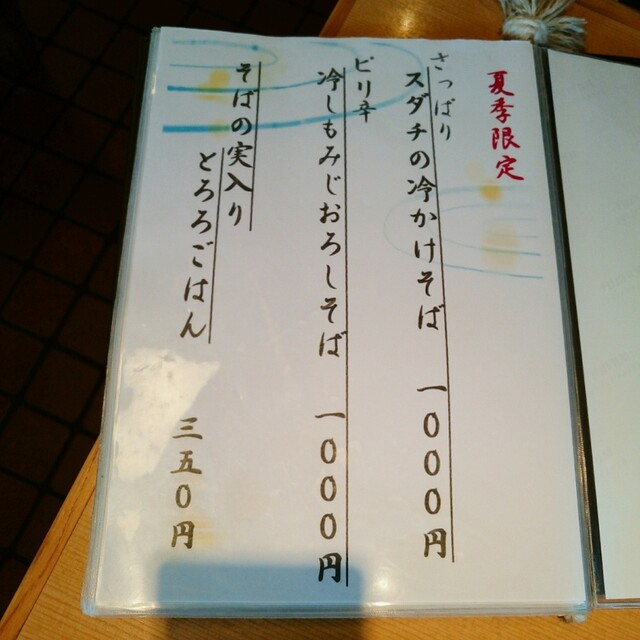 夏季限定
さっぱり
スダチの冷かけそば 一〇〇〇円
ピリ辛
冷しもみじおろしそば 一〇〇〇円
そばの実入り
とろろごはん 三五〇円